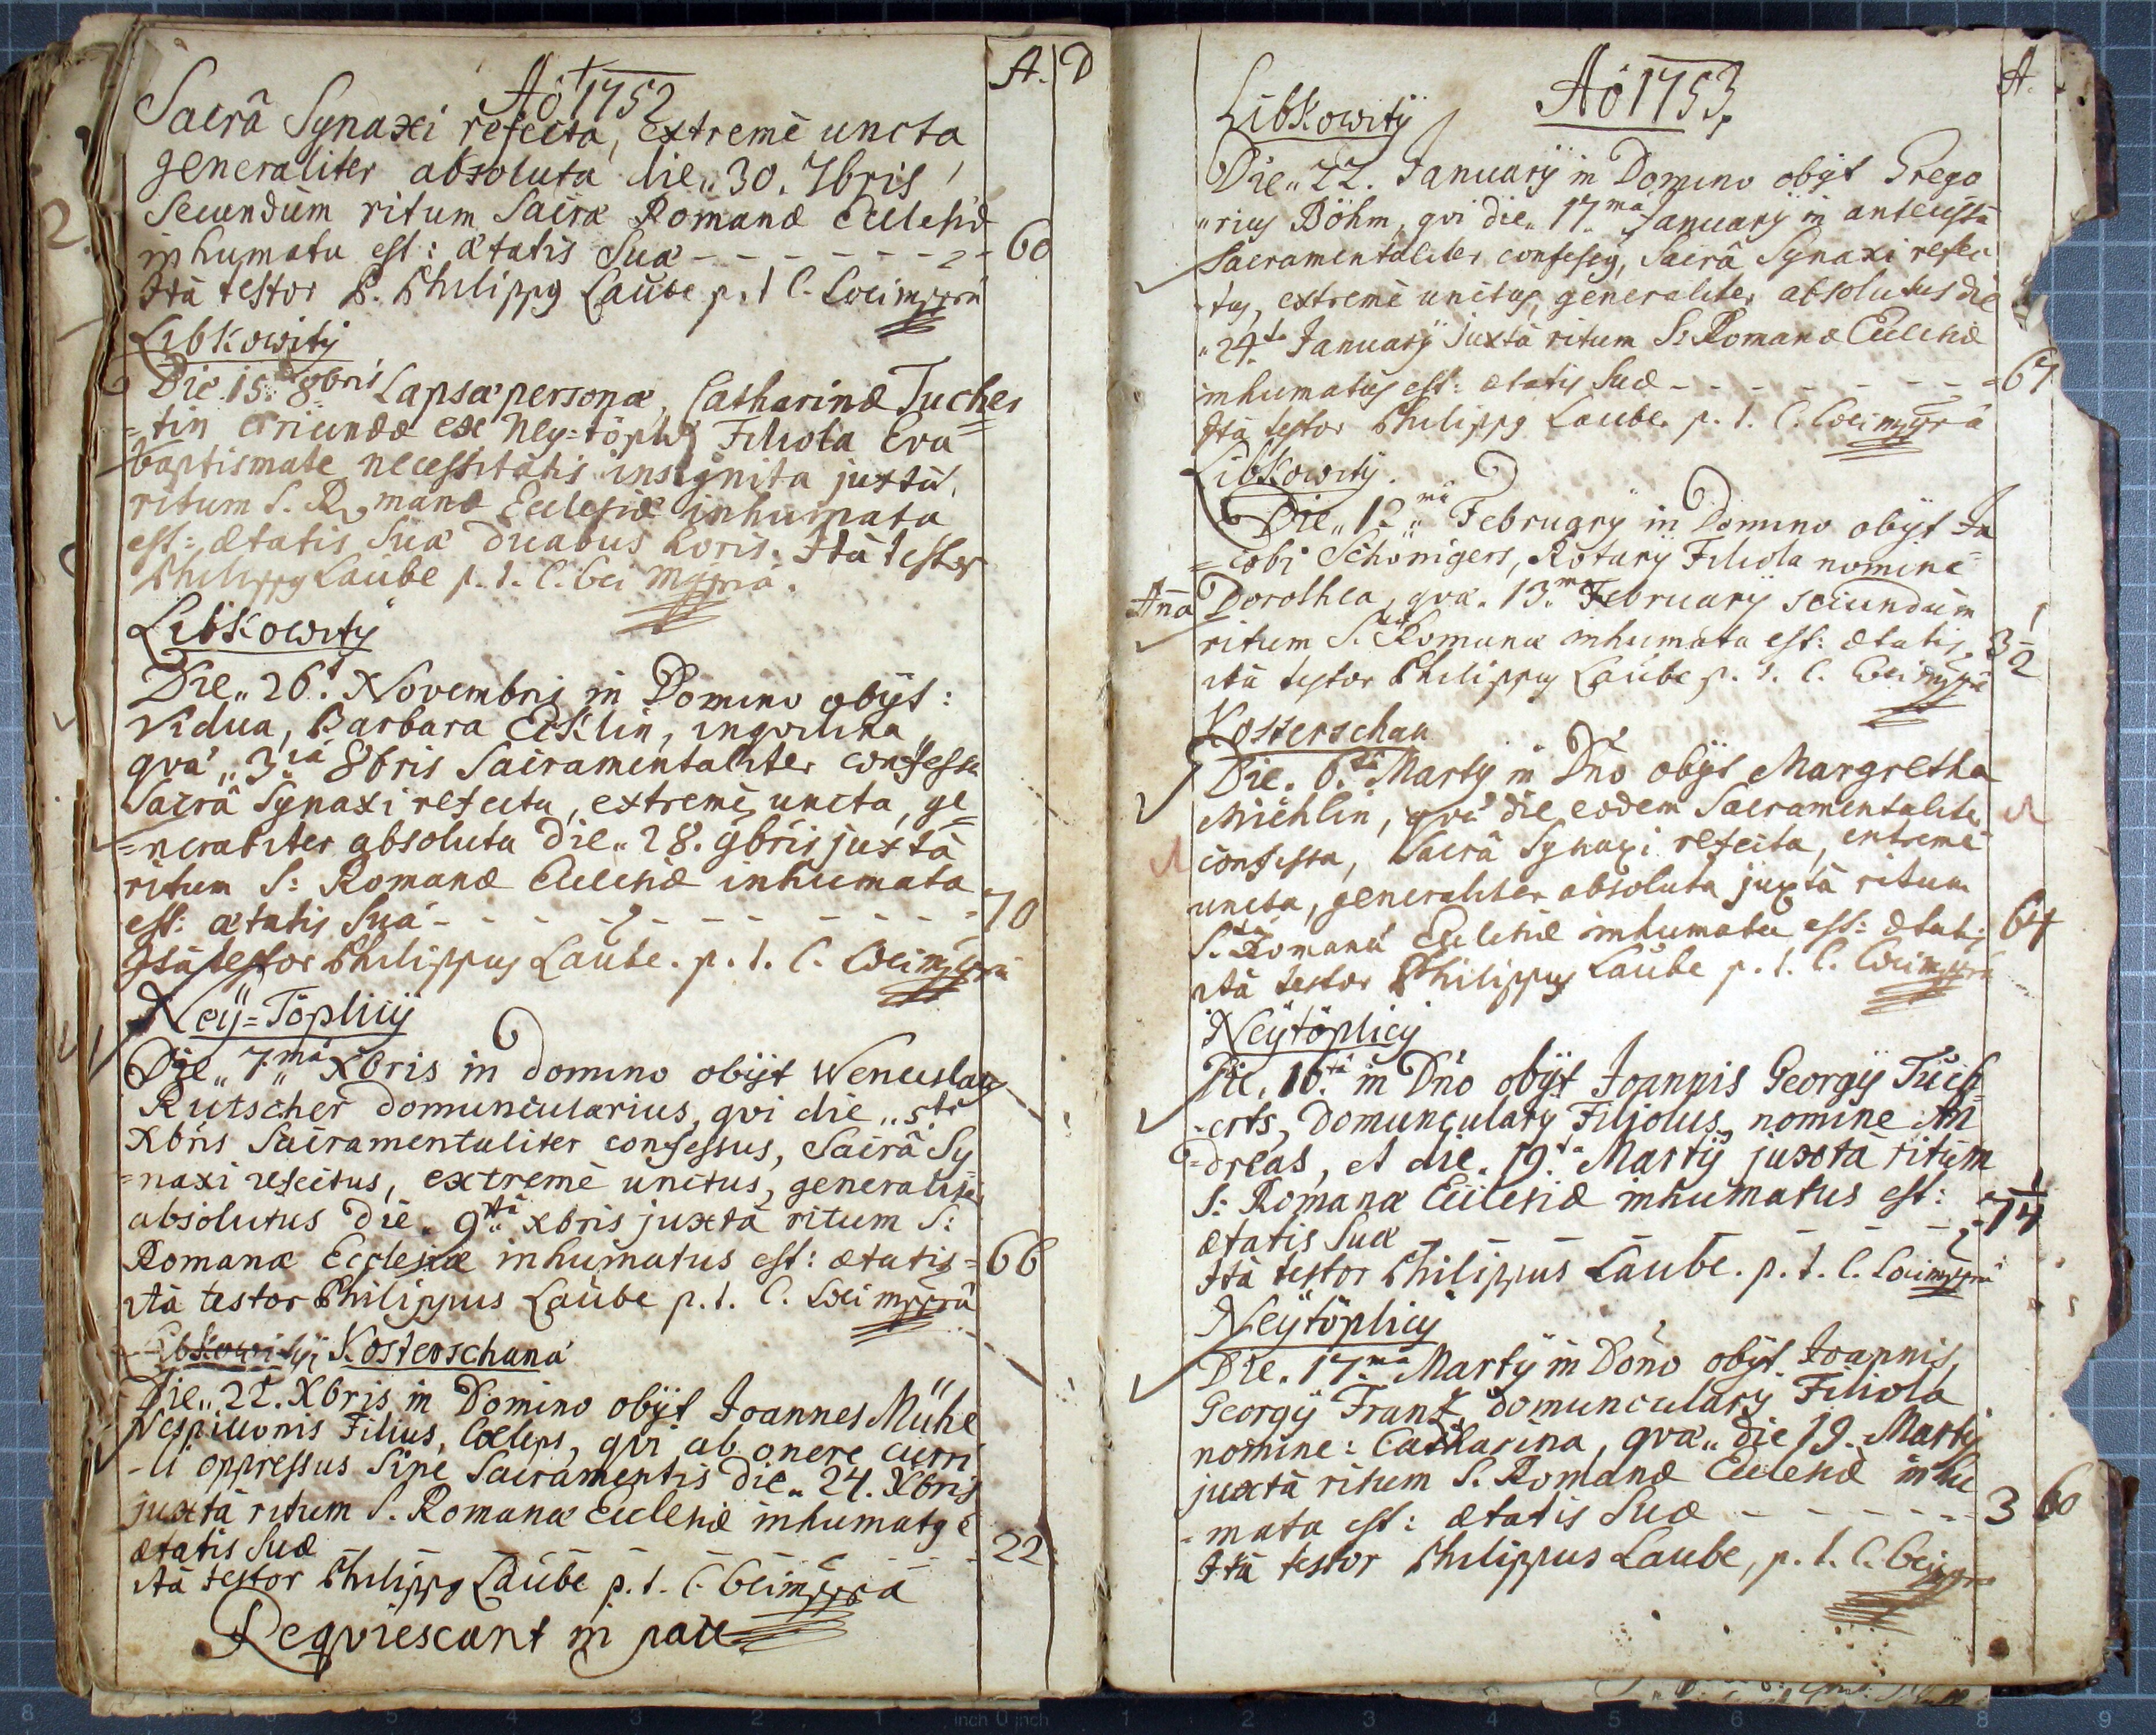 A. D
Aö 1752
Sacrâ Synaxi refecta, extremè uncta
generaliter absoluta die„ 30. 7bris
Secundùm ritum Sacræ Romanæ Ecclesiæ
inhumata est: ætatis Suæ - - - - - - - 60
Ità testor P. Philippq Laube p. t. C. Loci mppriâ
Libkowitÿ
Die. 15. 8bris Lapsæ personæ, Catharinæ Tucher
=tin oriundæ ex Neÿ=töplitz Filiola Eva
baptismate necessitatis insignita juxtà
ritum S. Romanæ Ecclesiæ inhumata
est: ætatis Suæ duabus horis. Ità testor
Philippq Laube p. t. C. Loci mppriâ.
Libkowitÿ
Die„ 26. Novembris in Domino obÿt:
Vidua, Barbara Eiklin, inqvilina
qvæ„ 3tiâ 8bris Sacramentaliter confessa
Sacrâ Synaxi refecta, extremè, uncta, ge
=neraliter absoluta Die„ 28. 9bris juxtà
ritum S: Romanæ Ecclesiæ inhumata
est: ætatis Suæ - - - - - - - - - 70
Ità testor Philippus Laube. p. t. C. Loci mppriâ
Neÿ=Töplicÿ
Die„ 7.mâ Xbris in domino obÿt Wenceslaus
Rutscher domuncularius, qvi die„ 5tâ
Xbris Sacramentaliter confessus, Sacrâ Sy
=naxi refectus, extremè unctus, generaliter
absolutus Die. 9tâ xbris juxtà ritum S:
Romanæ Ecclesiæ inhumatus est: ætatis = 66
ità testor Philippus Laube p. t. C. Loci mppriâ
Libkowitÿ Kosterschana
Die„ 22. Xbris in Domino obÿt Joannes Mühl
Vespillonis Filius, Cœlebs, qvi ab onere curri
-li oppressus Sine Sacramentis Die„ 24. Xbris
juxtà ritum S. Romanæ Ecclesiæ inhumatq ë
ætatis Suæ - - - - - - - 22
ità testor Philippq Laube p. t. C. Loci mppriâ
Reqviescant in pace
A.
Aö 1753
Libkowitÿ
Die„ 22. Januarÿ in Domino obÿt Grego
„rius Böhm, qvi die„ 17ma Januarÿ in
Sacramentaliter confessq, Sacrâ Synaxi refec
-tus, extremè unctus, generaliter absolutus die
„24ta Januarÿ juxtà ritum S: Romanæ Ecclesiæ
inhumatus est: ætatis Suæ - - - - - - - = 67
Ità testor Philippq Laube. p. t. C. Loci mppriâ
Libkowitÿ.
Die„ 12mâ Februarÿ in Domino obÿt Ja
=cobi Schönigers, Rotarÿ Filiola nomine
Aña Dorothea, qvæ. 13.ma Februarÿ secundùm
ritum S. Romanæ inhumata est: ætatis. 3 1/2
ità testor Philippus Laube p. t. C. Loci mppriâ
Kosterschan
Die. 6.tâ Martÿ in Dño obÿt Margretha
Michlin, qvæ die eodem Sacramentaliter
confessa, Sacrâ Synaxi refecta, extremè
uncta, generaliter absoluta juxtà ritum
S. Romanæ Ecclesiæ inhumata est: ætatis 64
ità testor Philippus Laube p. t. C. Loci mppriâ
Neÿtöplicÿ
Die. 16.tâ in Dño obÿt Joannis Georgÿ Tuch
-erts, Domuncularÿ Filiolus, nomine An
=dreas, et die. 19.na Martÿ juxtà ritùm
S: Romanæ Ecclesiæ inhumatus est:
ætatis Suæ - - - - - - - 7 1/4
Ità testor Philippus Laube. p. t. C. Loci mppriâ
Neÿtöplicÿ
Die. 17.mâ Martÿ in Dõno obÿt. Joannis
Georgÿ Frank domuncularÿ Filiola
nomine: Catharina, qvæ„ die 19. Martÿ
juxtà ritum S. Romanæ Ecclesiæ inhu
=mata est: ætatis Suæ - - - - - - 3 60
Ità testor Philippus Laube, p. t. C. Loci mppr